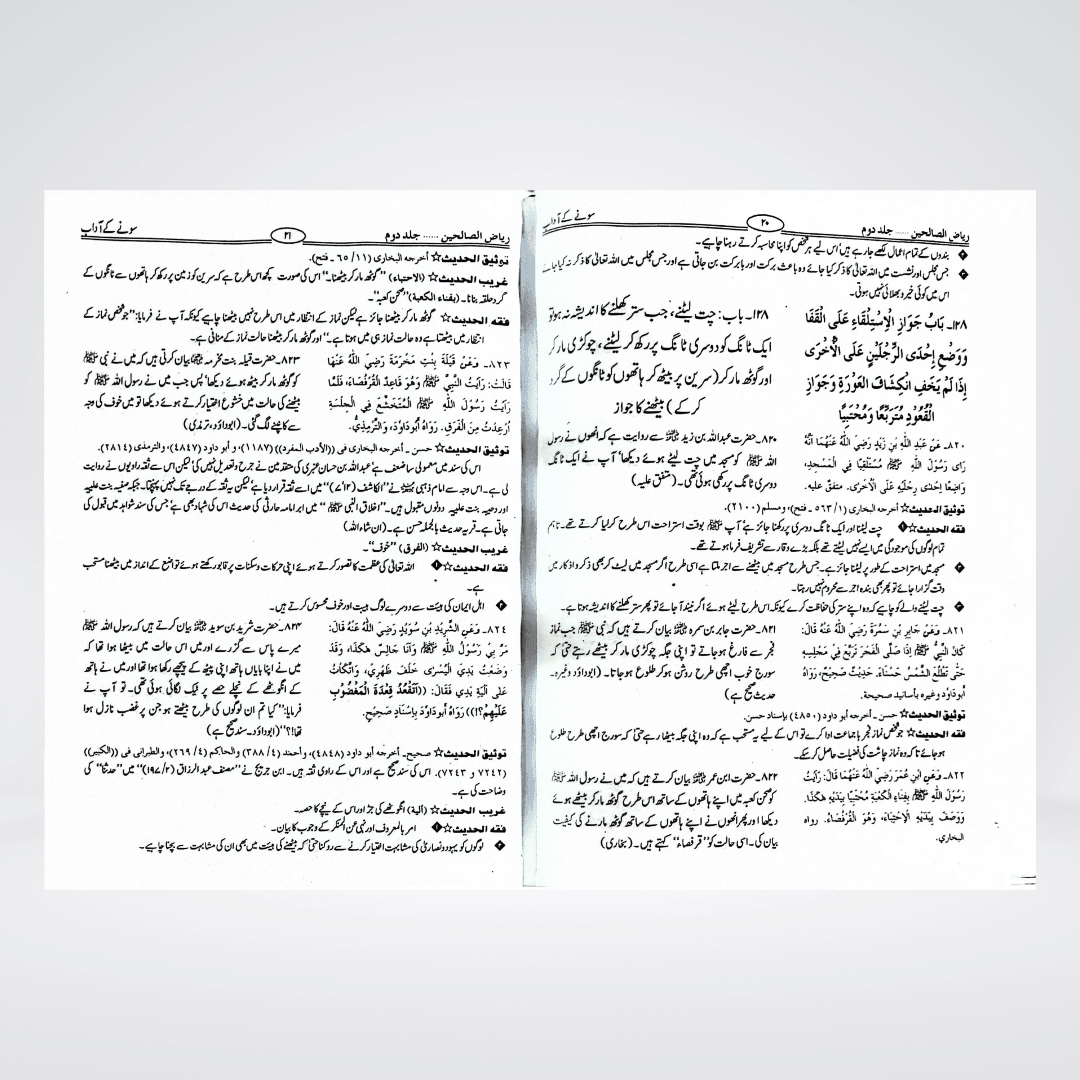 ریاض الصالحین ...... جلد دوم ۲۰ سونے کے آداب
بندوں کے تمام اعمال لکھے جا رہے ہیں اس لیے ہر شخص کو اپنا محاسبہ کرتے رہنا چاہیے۔
جس مجلس اور نشست میں اللہ تعالیٰ کا ذکر کیا جائے وہ باعث برکت اور بابرکت بن جاتی ہے اور جس مجلس میں اللہ تعالیٰ کا ذکر نہ کیا جائے
اس میں کوئی خیر و بھلائی نہیں ہوتی۔
۱۲۸۔ بَابُ جَوَازِ الْإِسْتِلْقَاءِ عَلَى الْقَفَا
وَوَضْعِ إِحْدَى الرِّجْلَيْنِ عَلَى الْأُخْرَى
إِذَا لَمْ يَخَفِ انْكِشَافَ الْعَوْرَةِ وَجَوَازِ
الْقُعُودِ مُتَرَبِّعًا وَمُحْتَبِيًا
۱۲۸۔ باب: چت لیٹنے، جب ستر کھلنے کا اندیشہ نہ ہو تو
ایک ٹانگ کو دوسری ٹانگ پر رکھ کر لیٹنے، چوکڑی مار کر
اور گوٹھ مار کر (سرین پر بیٹھ کر ہاتھوں کو ٹانگوں کے گرد
کر کے) بیٹھنے کا جواز
۸۲۰۔ عَنْ عَبْدِ اللَّهِ بْنِ زَيْدٍ رَضِيَ اللَّهُ عَنْهُمَا أَنَّهُ
رَأَى رَسُولَ اللَّهِ ﷺ مُسْتَلْقِيًا فِي الْمَسْجِدِ،
وَاضِعًا إِحْدَى رِجْلَيْهِ عَلَى الْأُخْرَى. متفق عليه.
۸۲۰۔ حضرت عبداللہ بن زید ؓ سے روایت ہے کہ انھوں نے رسول
اللہ ﷺ کو مسجد میں چت لیٹے ہوئے دیکھا' آپ نے ایک ٹانگ
دوسری ٹانگ پر رکھی ہوئی تھی۔ (متفق علیہ)
توثيق الحديث☆ أخرجه البخاری (۱/ ۵۶۳۔ فتح)، ومسلم (۲۱۰۰).
فقه الحديث☆ چت لیٹنا اور ایک ٹانگ دوسری پر رکھنا جائز ہے' آپ ﷺ بوقت استراحت اس طرح کر لیا کرتے تھے۔ تاہم
تمام لوگوں کی موجودگی میں ایسے نہیں لیٹتے تھے بلکہ بڑے وقار سے تشریف فرما ہوتے تھے۔
مسجد میں استراحت کے طور پر لیٹنا جائز ہے۔ جس طرح مسجد میں بیٹھنے سے اجر ملتا ہے اسی طرح اگر مسجد میں لیٹ کر بھی ذکر و اذکار میں
وقت گزارا جائے تو پھر بھی بندہ اجر سے محروم نہیں رہتا۔
چت لیٹنے والے کو چاہیے کہ وہ اپنے ستر کی حفاظت کرے کیونکہ اس طرح لیٹے ہوئے اگر نیند آ جائے تو پھر ستر کھلنے کا اندیشہ ہوتا ہے۔
۸۲۱۔ وَعَنْ جَابِرِ بْنِ سَمُرَةَ رَضِيَ اللَّهُ عَنْهُ قَالَ:
كَانَ النَّبِيُّ ﷺ إِذَا صَلَّى الْفَجْرَ تَرَبَّعَ فِي مَجْلِسِهِ
حَتَّى تَطْلُعَ الشَّمْسُ حَسْنَاءَ. حَدِيثٌ صَحِيحٌ، رَوَاهُ
أبو داؤد وغيره بأسانيد صحيحة.
۸۲۱۔ حضرت جابر بن سمرہ ؓ بیان کرتے ہیں کہ نبی ﷺ جب نماز
فجر سے فارغ ہو جاتے تو اپنی جگہ چوکڑی مار کر بیٹھے رہتے حتیٰ کہ
سورج خوب اچھی طرح روشن ہو کر طلوع ہو جاتا۔ (ابوداؤد وغیرہ۔
حدیث صحیح ہے)
توثيق الحديث☆ حسن۔ أخرجه أبو داود (۴۸۵۰) بإسناد حسن.
فقه الحديث☆ جو شخص نماز فجر باجماعت ادا کرے تو اس کے لیے یہ مستحب ہے کہ وہ اپنی جگہ بیٹھا رہے حتیٰ کہ سورج اچھی طرح طلوع
ہو جائے تا کہ وہ نماز چاشت کی فضیلت حاصل کر سکے۔
۸۲۲۔ وَعَنِ ابْنِ عُمَرَ رَضِيَ اللَّهُ عَنْهُمَا قَالَ: رَأَيْتُ
رَسُولَ اللَّهِ ﷺ بِفِنَاءِ الْكَعْبَةِ مُحْتَبِيًا بِيَدَيْهِ هَكَذَا.
وَوَصَفَ بِيَدَيْهِ الِاحْتِبَاءَ، وَهُوَ الْقُرْفُصَاءُ. رواه
البخاري.
۸۲۲۔ حضرت ابن عمر ؓ بیان کرتے ہیں کہ میں نے رسول اللہ ﷺ
کو صحن کعبہ میں اپنے ہاتھوں کے ساتھ اس طرح گوٹھ مار کر بیٹھے ہوئے
دیکھا اور پھر انھوں نے اپنے ہاتھوں کے ساتھ گوٹھ مارنے کی کیفیت
بیان کی۔ اسی حالت کو "قرفصاء" کہتے ہیں۔ (بخاری)
ریاض الصالحین ...... جلد دوم ۲۱ سونے کے آداب
توثيق الحديث☆ أخرجه البخاري (۱۱/ ۶۵۔ فتح).
غريب الحديث☆ (الاحتباء) "گوٹھ مار کر بیٹھنا۔" اس کی صورت کچھ اس طرح ہے کہ سرین کو زمین پر رکھ کر ہاتھوں سے ٹانگوں کے
گرد حلقہ بنانا۔ (بفناء الكعبة) "صحن کعبہ"۔
فقه الحديث☆ گوٹھ مار کر بیٹھنا جائز ہے لیکن نماز کے انتظار میں اس طرح نہیں بیٹھنا چاہیے کیونکہ آپ نے فرمایا: "جو شخص نماز کے
انتظار میں بیٹھتا ہے وہ حالت نماز ہی میں ہوتا ہے۔" اور گوٹھ مار کر بیٹھنا حالت نماز کے منافی ہے۔
۸۲۳۔ وَعَنْ قَيْلَةَ بِنْتِ مَخْرَمَةَ رَضِيَ اللَّهُ عَنْهَا
قَالَتْ: رَأَيْتُ النَّبِيَّ ﷺ وَهُوَ قَاعِدٌ الْقُرْفُصَاءَ، فَلَمَّا
رَأَيْتُ رَسُولَ اللَّهِ ﷺ الْمُتَخَشِّعَ فِي الْجِلْسَةِ
أُرْعِدْتُ مِنَ الْفَرَقِ. رَوَاهُ أَبُو دَاوُدَ، وَالتِّرْمِذِيُّ.
۸۲۳۔ حضرت قیلہ بنت مخرمہ ؓ بیان کرتی ہیں کہ میں نے نبی ﷺ
کو گوٹھ مار کر بیٹھے ہوئے دیکھا' پس جب میں نے رسول اللہ ﷺ کو
بیٹھنے کی حالت میں خشوع اختیار کرتے ہوئے دیکھا تو میں خوف کی وجہ
سے کانپنے لگ گئی۔ (ابوداؤد، ترمذی)
توثيق الحديث☆ حسن۔ أخرجه البخاری فی ((الأدب المفرد)) (۱۱۸۷)، و أبو داود (۴۸۴۷) والترمذی (۲۸۱۴)
اس کی سند میں معمولی سا ضعف ہے' عبداللہ بن حسان عنبری کی متقدمین نے جرح و تعدیل نہیں کی' لیکن اس سے ثقہ راویوں نے روایت
لی ہے۔ اس وجہ سے امام ذہبی نے "الکاشف (۷۱۳)" میں اسے ثقہ قرار دیا ہے' لیکن یہ ثقہ کے درجے تک نہیں پہنچتا۔ جبکہ صفیہ بنت علیبہ
اور دحیبہ بنت علیبہ دونوں مقبول ہیں۔ "اخلاق النبی ﷺ" میں ابو امامہ حارثی کی حدیث اس کی شاہد بھی ہے' جس کی سند شواہد میں قبول کی
جاتی ہے۔ قریہ حدیث بالجملہ حسن ہے۔ (ان شاء اللہ)
غريب الحديث☆ (الفرق) "خوف"۔
فقه الحديث☆ اللہ تعالیٰ کی عظمت کا تصور کرتے ہوئے اپنی حرکات و سکنات پر قابو رکھتے ہوئے تواضع کے انداز میں بیٹھنا مستحب
ہے۔
اہل ایمان کی ہیبت سے دوسرے لوگ ہیبت اور خوف محسوس کرتے ہیں۔
۸۲۴۔ وَعَنِ الشَّرِيدِ بْنِ سُوَيْدٍ رَضِيَ اللَّهُ عَنْهُ قَالَ:
مَرَّ بِي رَسُولُ اللَّهِ ﷺ وَأَنَا جَالِسٌ هَكَذَا، وَقَدْ
وَضَعْتُ يَدِيَ الْيُسْرَى خَلْفَ ظَهْرِي، وَاتَّكَأْتُ
عَلَى أَلْيَةِ يَدِي فَقَالَ: ((أَتَقْعُدُ قِعْدَةَ الْمَغْضُوبِ
عَلَيْهِمْ؟!)) رَوَاهُ أَبُو دَاوُدَ بِإِسْنَادٍ صَحِيحٍ.
۸۲۴۔ حضرت شرید بن سوید ؓ بیان کرتے ہیں کہ رسول اللہ ﷺ
میرے پاس سے گزرے اور میں اس حالت میں بیٹھا ہوا تھا کہ
میں نے اپنا بایاں ہاتھ اپنی پیٹھ کے پیچھے رکھا ہوا تھا اور میں نے ہاتھ
کے انگوٹھے کے نچلے حصے پر ٹیک لگائی ہوئی تھی۔ تو آپ نے
فرمایا: "کیا تم ان لوگوں کی طرح بیٹھتے ہو جن پر غضب نازل ہوا
تھا!؟" (ابوداؤد۔ سند صحیح ہے)
توثيق الحديث☆ صحيح۔ أخرجه أبو داود (۴۸۴۸)، وأحمد (۴/ ۳۸۸)، والحاكم (۴/ ۲۶۹)، والطبرانی فی ((الكبير))
(۷۲۴۲ و ۷۲۴۳). اس کی سند صحیح ہے اور اس کے راوی ثقہ ہیں۔ ابن جریج نے "مصنف عبدالرزاق (۲/ ۱۹۷)" میں "حدثنا" کی
وضاحت کی ہے۔
غريب الحديث☆ (ألية) انگوٹھے کی جڑ اور اس کے نیچے کا حصہ۔
فقه الحديث☆ امر بالمعروف اور نہی عن المنکر کے وجوب کا بیان۔
لوگوں کو یہود و نصاریٰ کی مشابہت اختیار کرنے سے روکنا حتیٰ کہ بیٹھنے کی ہیئت میں بھی ان کی مشابہت سے بچنا چاہیے۔